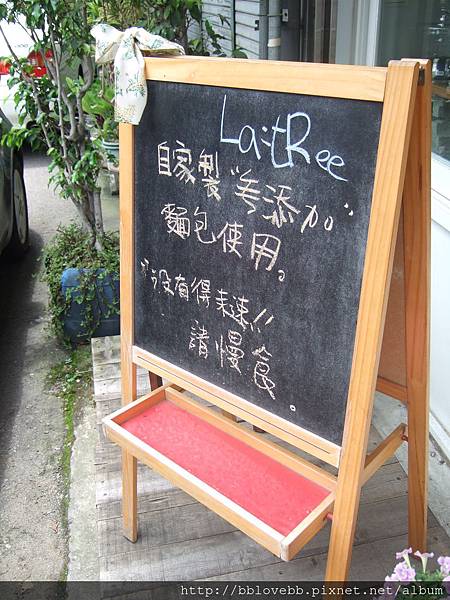 LaitRee
自家製"零添加"
麵包使用。
"沒有得來速!!
請慢食。
http://bblovebb.pixnet.net/album